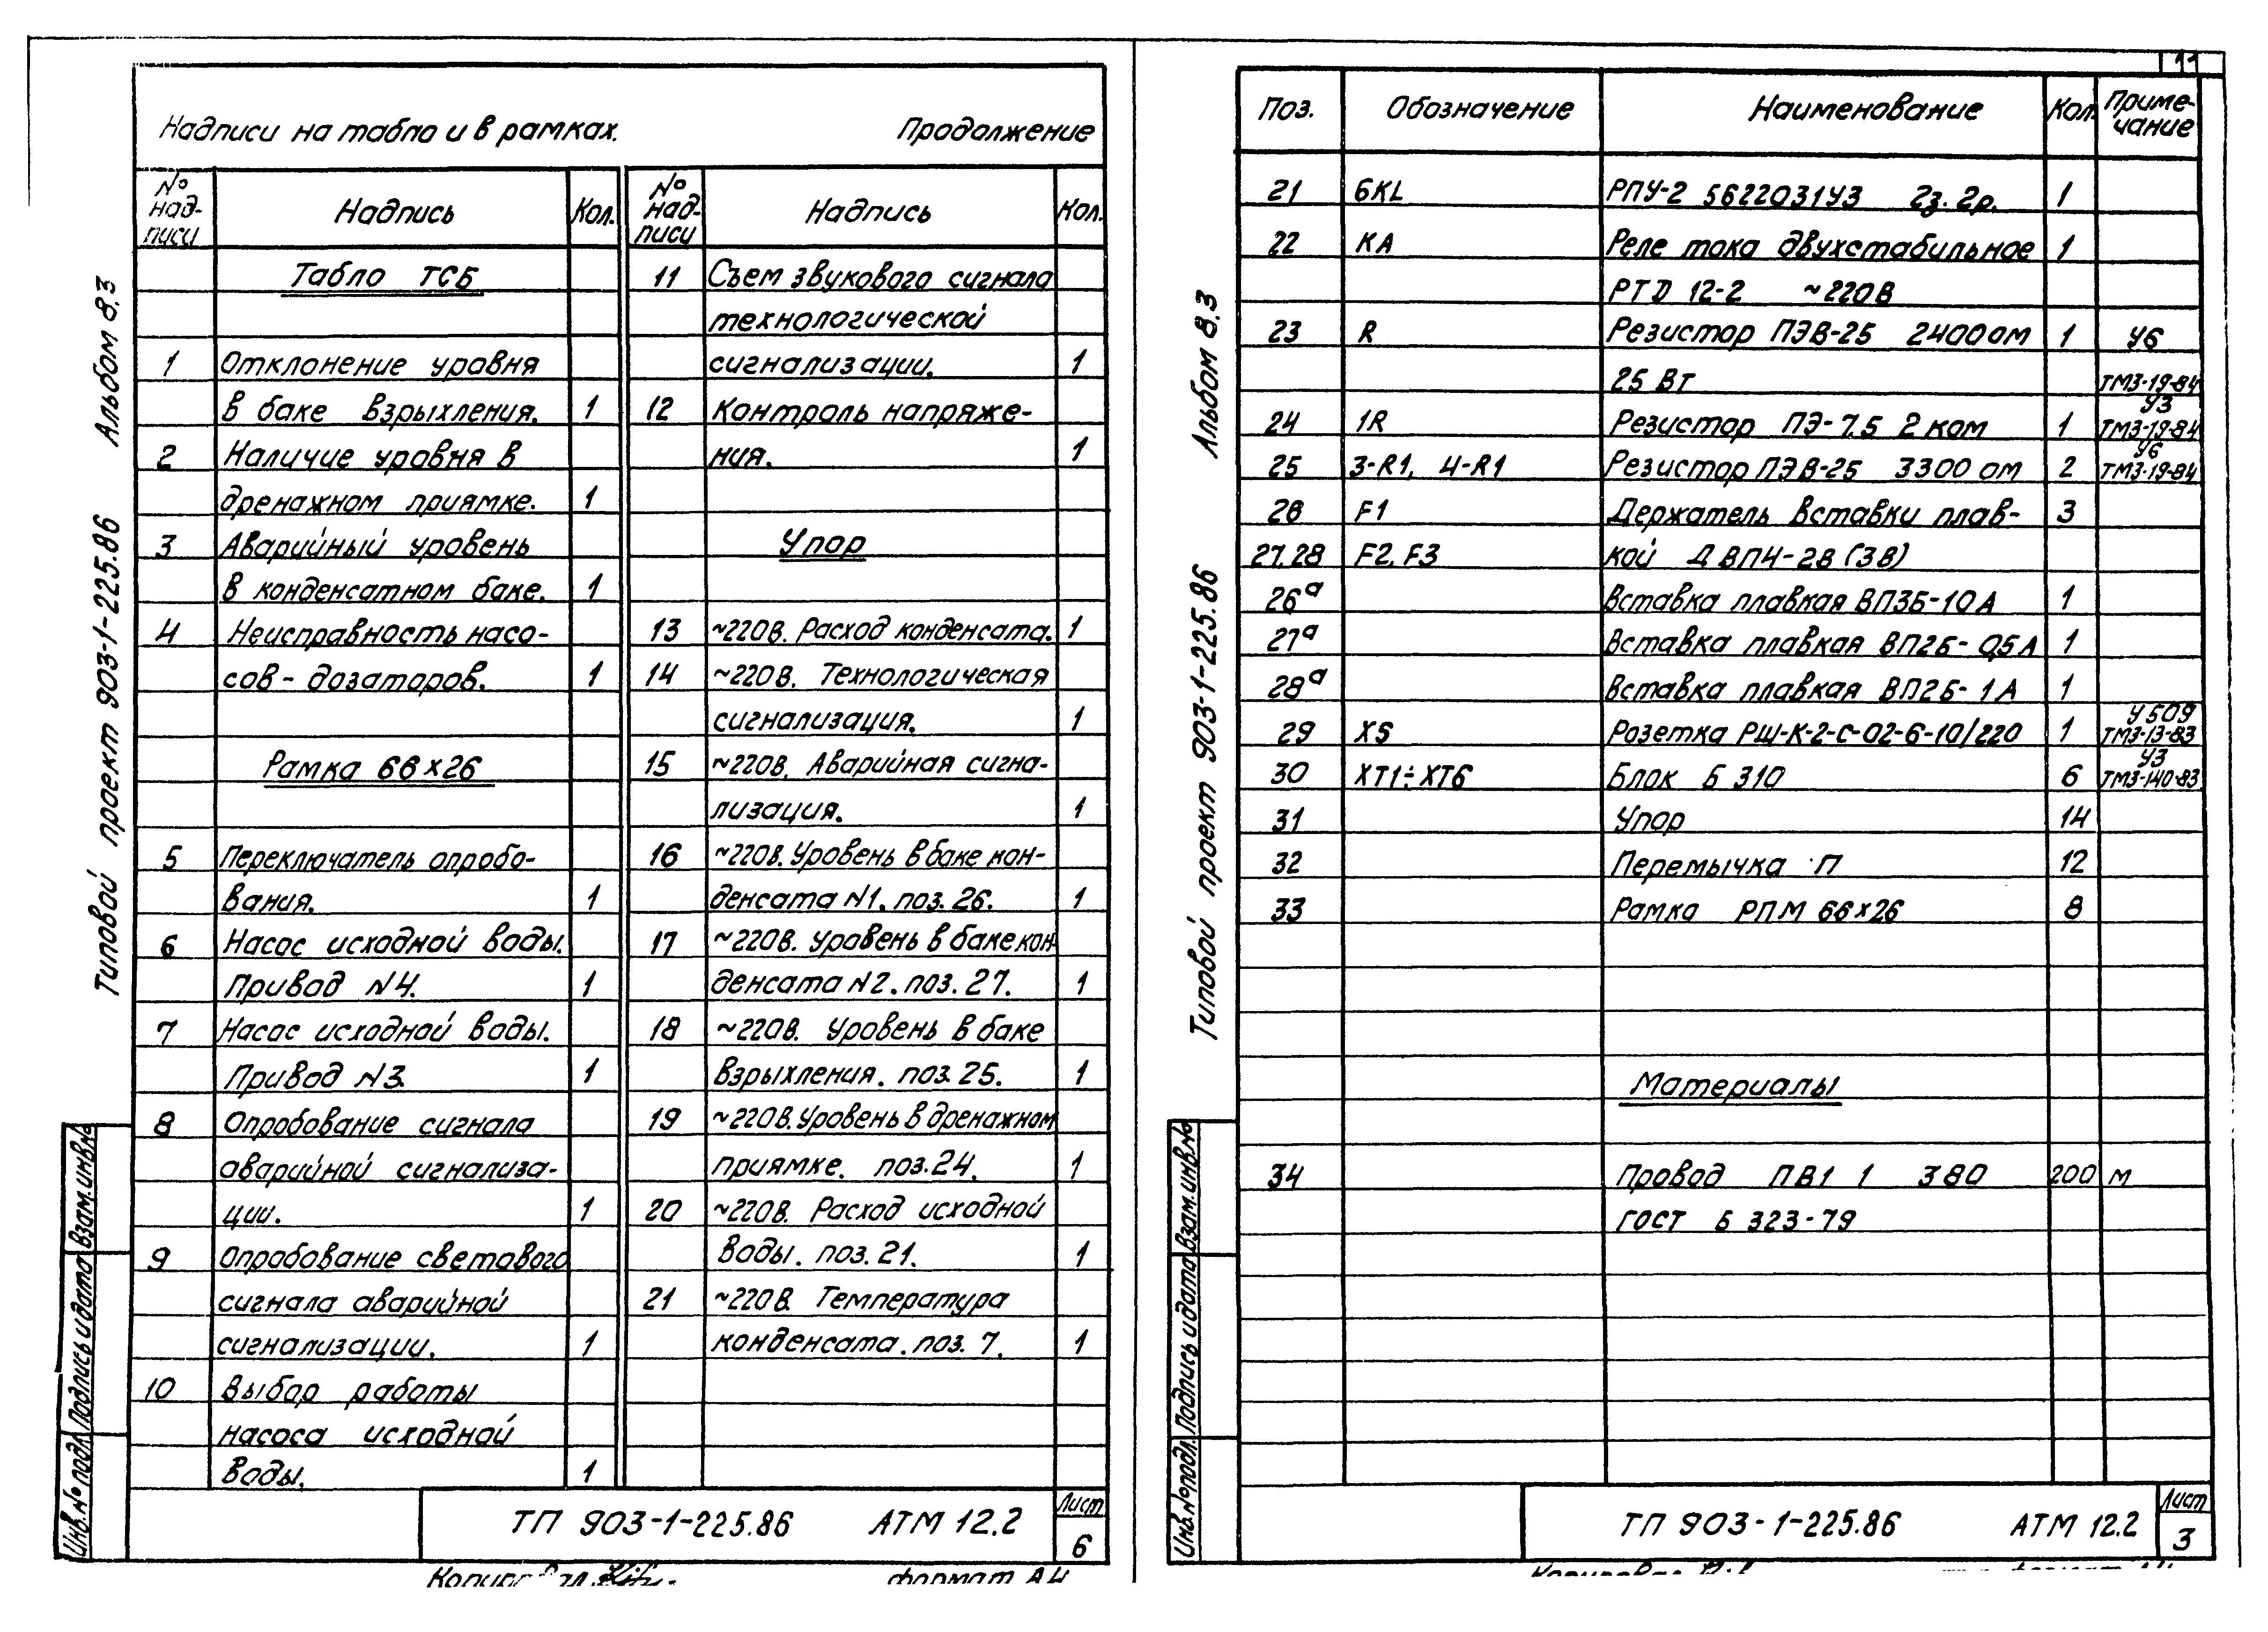 Надписи на табло и в рамках. Продолжение
№ над- писи Надпись Кол.
Табло ТСБ
1 Отклонение уровня
в баке взрыхления. 1
2 Наличие уровня в
дренажном приямке. 1
3 Аварийный уровень
в конденсатном баке. 1
4 Неисправность насо-
сов-дозаторов. 1
Рамка 66х26
5 Переключатель опробо-
вания. 1
6 Насос исходной воды.
Привод N4. 1
7 Насос исходной воды.
Привод N3. 1
8 Опробование сигнала
аварийной сигнализа-
ции. 1
9 Опробование светового
сигнала аварийной
сигнализации. 1
10 Выбор работы
насоса исходной
воды. 1
№ над- писи Надпись Кол.
11 Съем звукового сигнала
технологической
сигнализации. 1
12 Контроль напряже-
ния. 1
Упор
13 ~220В. Расход конденсата. 1
14 ~220В. Технологическая
сигнализация. 1
15 ~220В. Аварийная сигна-
лизация. 1
16 ~220В. Уровень в баке кон-
денсата N1. поз. 26. 1
17 ~220В. Уровень в баке кон-
денсата N2. поз. 27. 1
18 ~220В. Уровень в баке
взрыхления. поз. 25. 1
19 ~220В. Уровень в дренажном
приямке. поз. 24. 1
20 ~220В. Расход исходной
воды. поз. 21. 1
21 ~220В. Температура
конденсата. поз. 7. 1
ТП 903-1-225.86 АТМ 12.2
Лист
6
Формат А4
Типовой проект 903-1-225.86 Альбом 8.3
Инв.№ подл. Подпись и дата Взам.инв.№
11
Поз. Обозначение Наименование Кол. Приме- чание
21 6KL РПУ-2 562203193 2з. 2р. 1
22 КА Реле тока двухстабильное 1
РТD 12-2 ~220В
23 R Резистор ПЭВ-25 2400 ом 1 У6
25 Вт ТМ3-19-84
24 1R Резистор ПЭ-7.5 2 ком 1 У3 ТМ3-19-84
25 3-R1, 4-R1 Резистор ПЭВ-25 3300 ом 2 У6 ТМ3-19-84
26 F1 Держатель вставки плав- 3
27.28 F2, F3 кой ДВП4-2В (3В)
26а Вставка плавкая ВП3Б-10А 1
27а Вставка плавкая ВП2Б-0,5А 1
28а Вставка плавкая ВП2Б-1А 1
29 Х5 Розетка РШ-К-2-С-02-6-10/220 1 У509 ТМ3-13-83
30 ХТ1÷ХТ6 Блок Б 310 6 У3 ТМ3-140-83
31 Упор 14
32 Перемычка П 12
33 Рамка РПМ 66х26 8
Материалы
34 Провод ПВ1 1 380 200 м
ГОСТ 6323-79
ТП 903-1-225.86 АТМ 12.2
Лист
3
Типовой проект 903-1-225.86 Альбом 8.3
Инв.№ подл. Подпись и дата Взам.инв.№